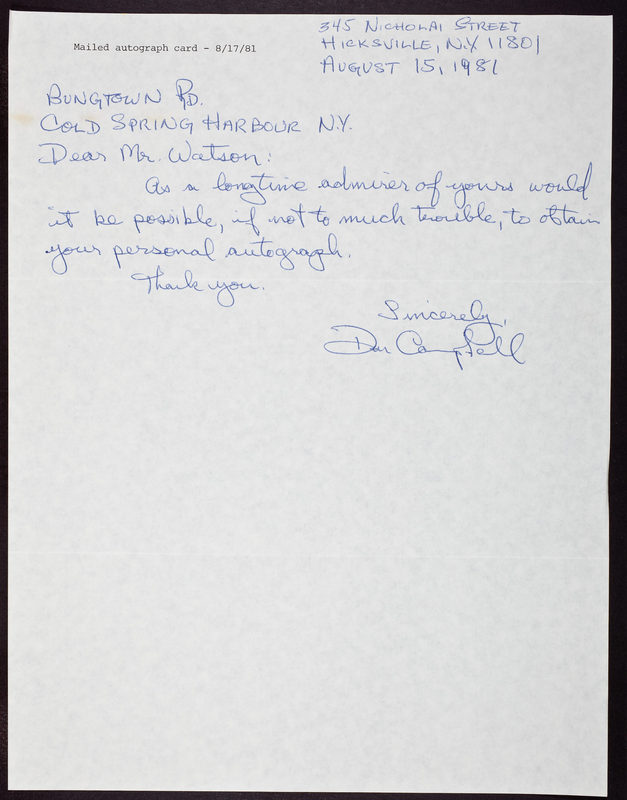 Mailed autograph card - 8/17/81
345 NICHOLAI STREET
HICKSVILLE, N.Y 11801
AUGUST 15, 1981
BUNGTOWN RD.
COLD SPRING HARBOUR N.Y.
Dear Mr. Watson:
As a longtime admirer of yours would
it be possible, if not to much trouble, to obtain
your personal autograph.
Thank you.
Sincerely,
Don Campbell